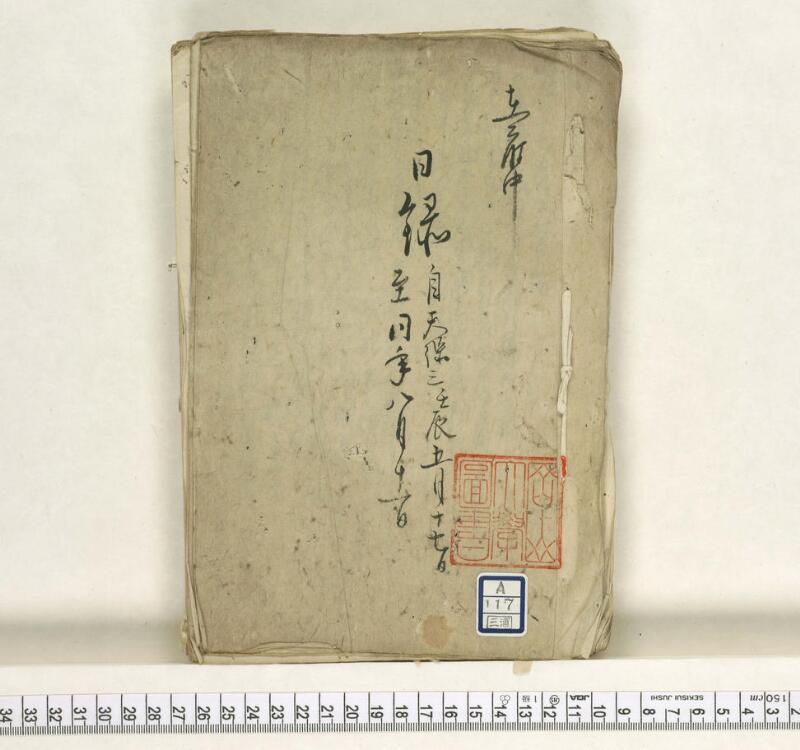 日録
自天保三壬辰五月十七日
至同年八月十一日
岡山
大學
圖書
A
117
34 33 32 31 30 29 28 27 26 25 24 23 22 21 20 19 18 17 16 15 14 13 12 11 10 9 8 7 6 5 4 3 2
1級
JQA
SEKISUI JUSHI
cm 150